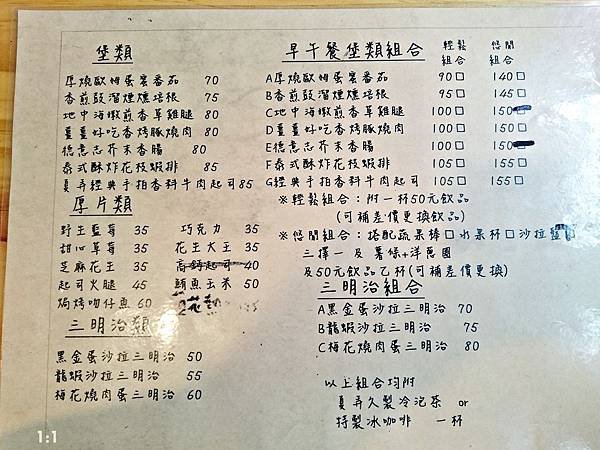 堡類
厚燒歐姆蛋素番茄 70
香煎豉溜煙燻培根 75
地中海嫩煎香草雞腿 80
薑薑好吃香烤豚燒肉 80
德意志芥末香腸 80
泰式酥炸花枝蝦排 85
真弄經典手拍香料牛肉起司 85
厚片類
野玉藍莓 35 巧克力 35
甜心草莓 35 花王大王 35
芝麻花王 35 高鈣起司 40
起司火腿 45 鮪魚玉米 50
焗烤吻仔魚 60
三明治類
黑金蛋沙拉三明治 50
龍蝦沙拉三明治 55
梅花燒肉蛋三明治 60
早午餐堡類組合 輕鬆組合 悠閒組合
A厚燒歐姆蛋素番茄 90□ 140□
B香煎豉溜煙燻培根 95□ 145□
C地中海嫩煎香草雞腿 100□ 150
D薑薑好吃香烤豚燒肉 100□ 150□
E德意志芥末香腸 100□ 150
F泰式酥炸花枝蝦排 105□ 155□
G經典手拍香料牛肉起司 105□ 155□
※輕鬆組合：附一杯50元飲品
(可補差價更換飲品)
※悠閒組合：搭配蔬果棒□水果杯□沙拉
三擇一 及 薯條+洋蔥圈
及50元飲品乙杯(可補差價更換)
三明治組合
A黑金蛋沙拉三明治 70
B龍蝦沙拉三明治 75
C梅花燒肉蛋三明治 80
以上組合均附
真弄久製冷泡茶 or
特製冰咖啡 一杯
1:1